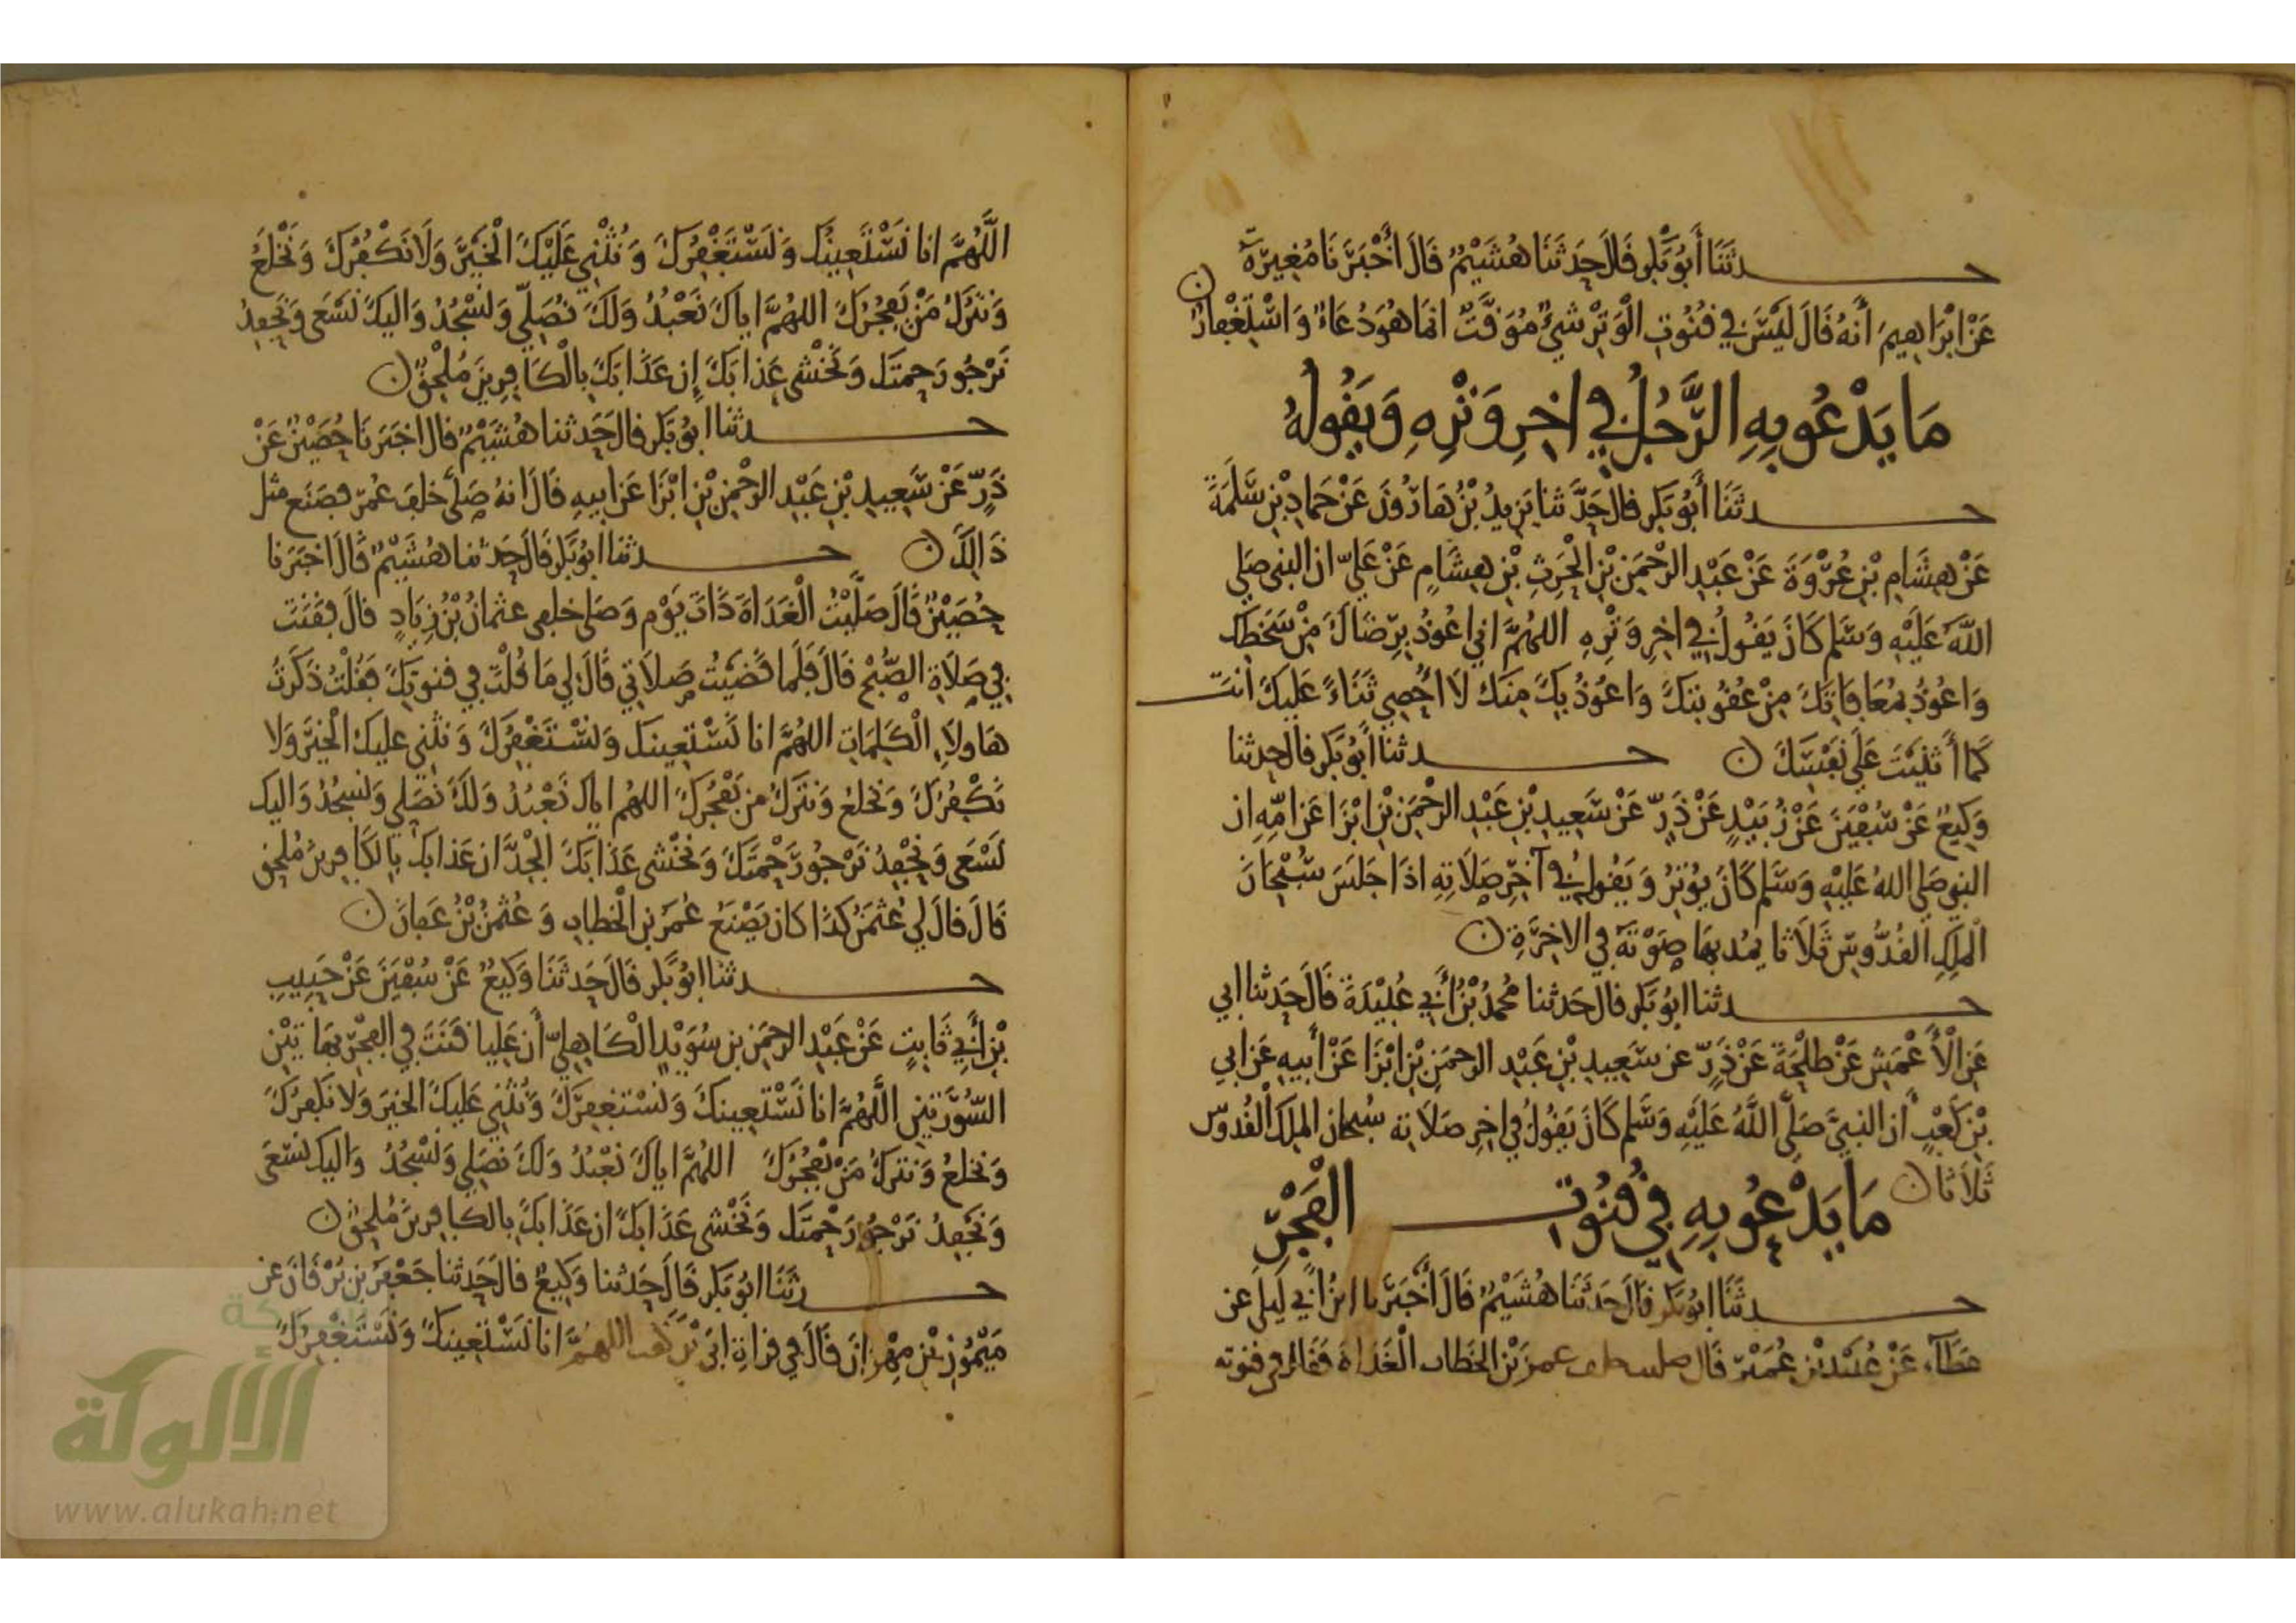 حدثنا أبو بكر قال حدثنا هشيم قال أخبرنا مغيرة
عن ابراهيم أنه قال ليس في قنوت الوتر شيء موقت انما هو دعاء واستغفار
ما يدعو به الرجل في اخر وتره ويقوله
حدثنا أبو بكر قال حدثنا يزيد بن هارون عن حماد بن سلمة
عن هشام بن عروة عن عبد الرحمن بن الحرث بن هشام عن علي ان النبي صلى
الله عليه وسلم كان يقول في اخر وتره اللهم اني اعوذ برضاك من سخطك
واعوذ بمعافاتك من عقوبتك واعوذ بك منك لا احصي ثناء عليك انت
كما أثنيت على نفسك حدثنا أبو بكر قال حدثنا
وكيع عن سفين عن زبيد عن ذر عن سعيد بن عبد الرحمن بن ابزا عن امه ان
النبي صلى الله عليه وسلم كان يوتر ويقول في آخر صلاته اذا جلس سبحان
الملك القدوس ثلاثا يمد بها صوته في الاخرة
حدثنا ابو بكر قال حدثنا محمد بن أبي عبيدة قال حدثنا ابي
عن الأعمش عن طلحة عن ذر عن سعيد بن عبد الرحمن بن ابزا عن أبيه عن ابي
بن كعب أن النبي صلى الله عليه وسلم كان يقول في اخر صلاته سبحان الملك القدوس
ثلاثا
ما يدعو به في قنوت الفجر
حدثنا ابو بكر قال حدثنا هشيم قال أخبرنا ابن أبي ليلى عن
عطاء عن عبيد بن عمير قال صليت خلف عمر بن الخطاب الغداة فقال في قنوته
اللهم انا نستعينك ونستغفرك ونثني عليك الخير ولا نكفرك ونخلع
ونترك من يفجرك اللهم اياك نعبد ولك نصلي ونسجد واليك نسعى ونحفد
نرجو رحمتك ونخشى عذابك إن عذابك بالكافرين ملحق
حدثنا ابو بكر قال حدثنا هشيم قال اخبرنا حصين عن
ذر عن سعيد بن عبد الرحمن بن ابزا عن ابيه قال انه صلى خلف عمر فصنع مثل
ذالك حدثنا ابو بكر قال حدثنا هشيم قال اخبرنا
حصين قال صليت الغداة ذات يوم وصلى خلفي عثمان بن زياد قال فقنت
في صلاة الصبح قال فلما قضيت صلاتي قال لي ما قلت في قنوتك فقلت ذكرت
هاولاء الكلمات اللهم انا نستعينك ونستغفرك ونثني عليك الخير ولا
نكفرك ونخلع ونترك من يفجرك اللهم اياك نعبد ولك نصلي ونسجد واليك
نسعى ونحفد نرجو رحمتك ونخشى عذابك الجد ان عذابك بالكافرين ملحق
قال قال لي عثمن كذا كان يصنع عمر بن الخطاب وعثمن بن عفان
حدثنا ابو بكر قال حدثنا وكيع عن سفين عن حبيب
بن أبي ثابت عن عبد الرحمن بن سويد الكاهلي أن عليا قنت في الفجر بهاتين
السورتين اللهم انا نستعينك ونستغفرك ونثني عليك الخير ولا نكفرك
ونخلع ونترك من يفجرك اللهم اياك نعبد ولك نصلي ونسجد واليك نسعى
ونحفد نرجو رحمتك ونخشى عذابك ان عذابك بالكافرين ملحق
حدثنا ابو بكر قال حدثنا وكيع قال حدثنا جعفر بن برقان عن
ميمون بن مهران قال في قراة ابي بن كعب اللهم انا نستعينك ونستغفرك
شبكة
الألوكة
www.alukah.net